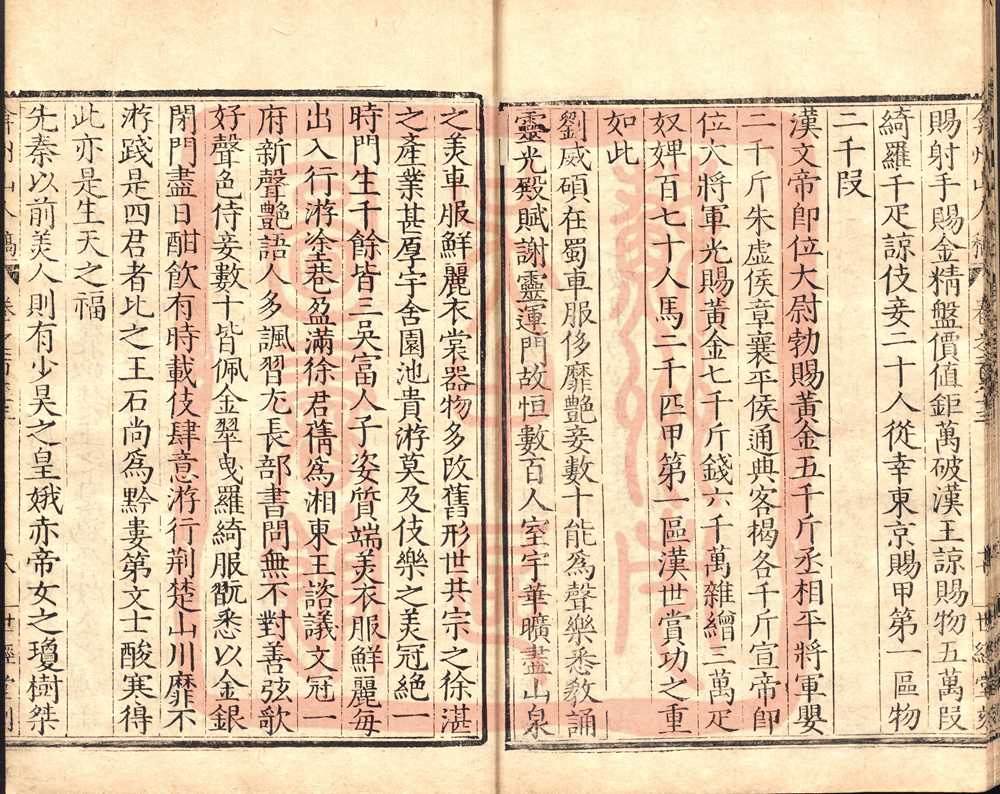 賜射手賜金精盤價值鉅萬破漢王諒賜物五萬段
綺羅千疋諒伎妾二十人從幸東京賜甲第一區物
二千段
漢文帝卽位大尉勃賜黃金五千斤丞相平將軍嬰
二千斤朱虛侯章襄平侯通典客揭各千斤宣帝卽
位大將軍光賜黃金七千斤錢六千萬雜繒三萬疋
奴婢百七十人馬二千匹甲第一區漢世賞功之重
如此
劉威碩在蜀車服侈靡艷妾數十能爲聲樂悉敎誦
靈光殿賦謝靈運門故恒數百人室宇華曠盡山泉
之美車服鮮麗衣裳器物多改舊形世共宗之徐湛
之產業甚厚宇舍園池貴游莫及伎樂之美冠絕一
時門生千餘皆三吳富人子姿質端美衣服鮮麗每
出入行游塗巷盈滿徐君蒨爲湘東王諮議文冠一
府新聲艷語人多諷習尤長部書問無不對善弦歌
好聲色侍妾數十皆佩金翠曳羅綺服翫悉以金銀
閉門盡日酣飲有時載伎肆意游行荆楚山川靡不
游踐是四君者比之王石尚爲黔婁第文士酸寒得
此亦是生天之福
先秦以前美人則有少昊之皇娥赤帝女之瓊樹桀